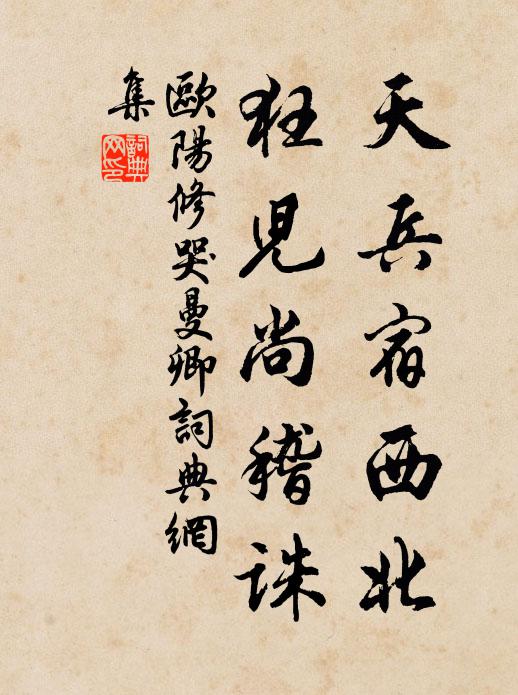 天兵宿西北
狂児尚稽誅
歐陽修哭曼卿詞典網
集
詞典
网印